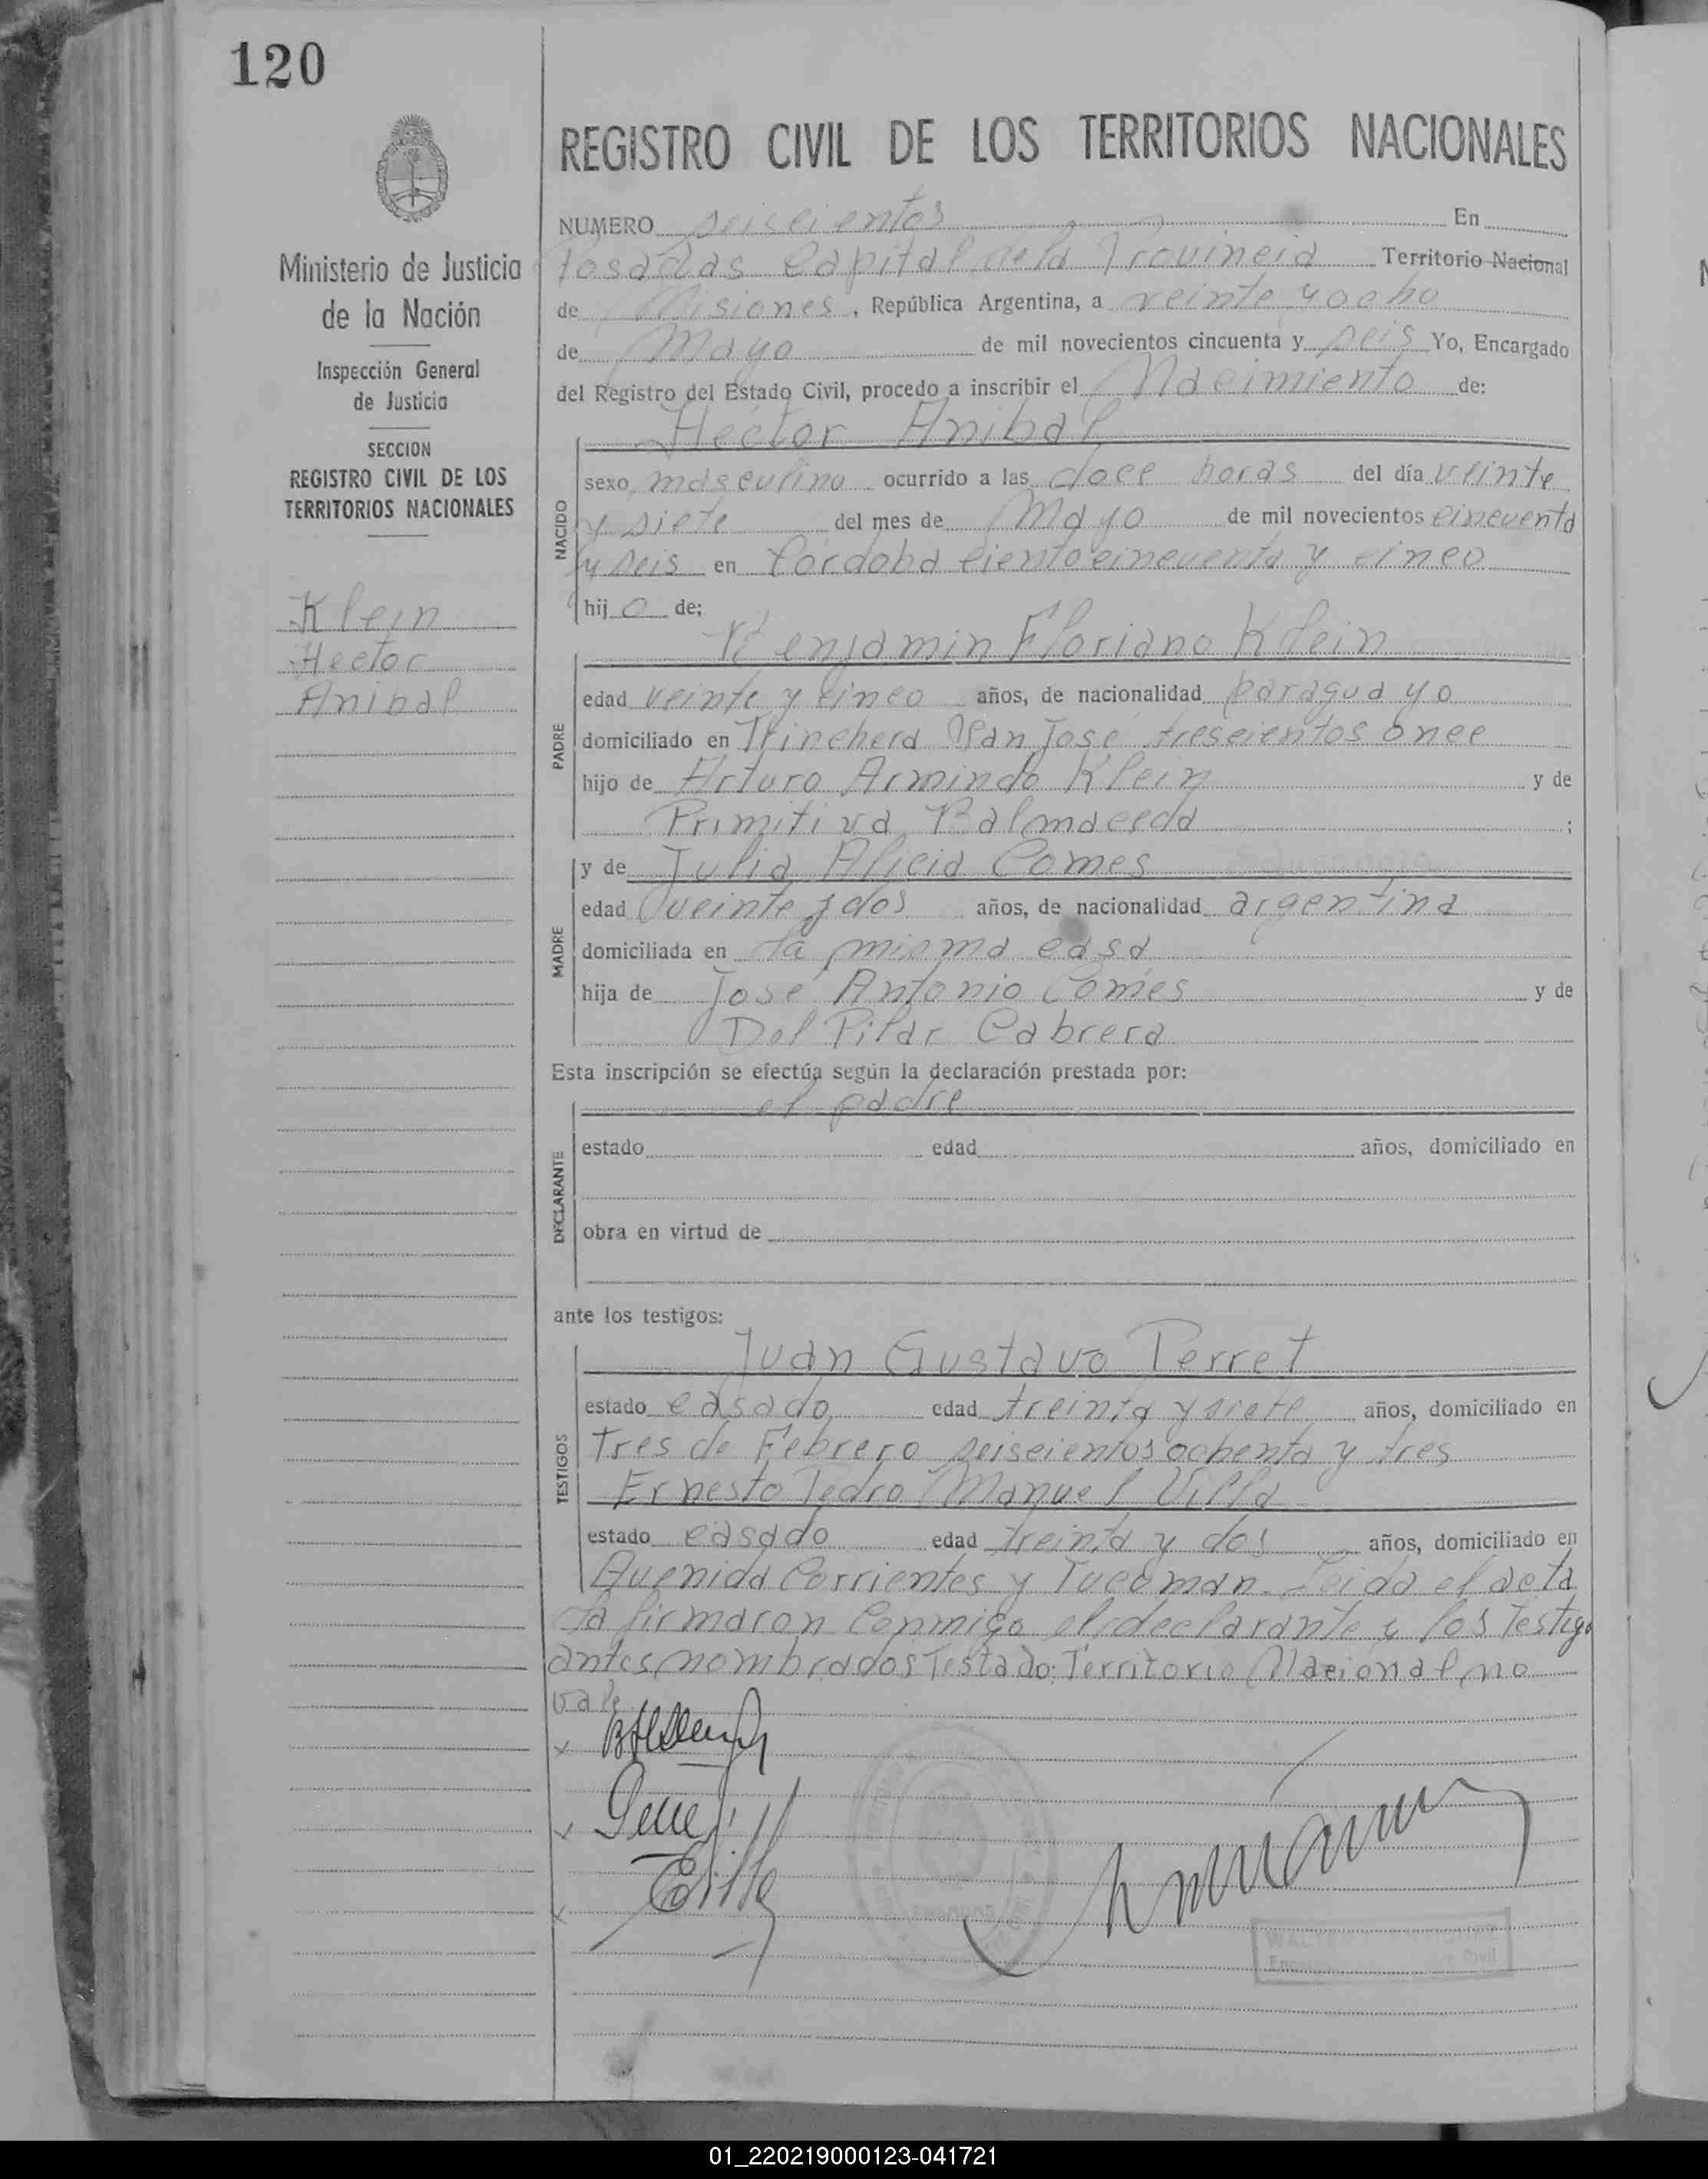 120
REGISTRO CIVIL DE LOS TERRITORIOS NACIONALES
Ministerio de Justicia
de la Nación
Inspección General
de Justicia
SECCION
REGISTRO CIVIL DE LOS
TERRITORIOS NACIONALES
Klein
Hector
Anibal
NUMERO seiscientos En
Posadas Capital de la Provincia Territorio Nacional
de Misiones, República Argentina, a veinte y ocho
de Mayo de mil novecientos cincuenta y seis Yo, Encargado
del Registro del Estado Civil, procedo a inscribir el Nacimiento de:
Hector Anibal
NACIDO
sexo masculino ocurrido a las doce horas del día veinte
y siete del mes de Mayo de mil novecientos cincuenta
y seis en Córdoba ciento cincuenta y cinco
hijo de;
Benjamin Floriano Klein
PADRE
edad veinte y cinco años, de nacionalidad paraguayo
domiciliado en Trinchera San José trescientos once
hijo de Arturo Armindo Klein y de
Primitiva Balmaceda ;
y de Julia Alicia Comes
MADRE
edad veinte y dos años, de nacionalidad argentina
domiciliada en la misma casa
hija de José Antonio Comes y de
Del Pilar Cabrera
Esta inscripción se efectúa según la declaración prestada por:
el padre
DECLARANTE
estado edad años, domiciliado en
obra en virtud de
ante los testigos:
Juan Gustavo Perret
TESTIGOS
estado casado edad treinta y siete años, domiciliado en
Tres de Febrero seiscientos ochenta y tres
Ernesto Pedro Manuel Villa
estado casado edad treinta y dos años, domiciliado en
Avenida Corrientes y Tucuman. Leida el acta
la firmaron conmigo el declarante y los testigo
antes nombrados Testado: Territorio Nacional, no
vale
Civil
01_220219000123-041721